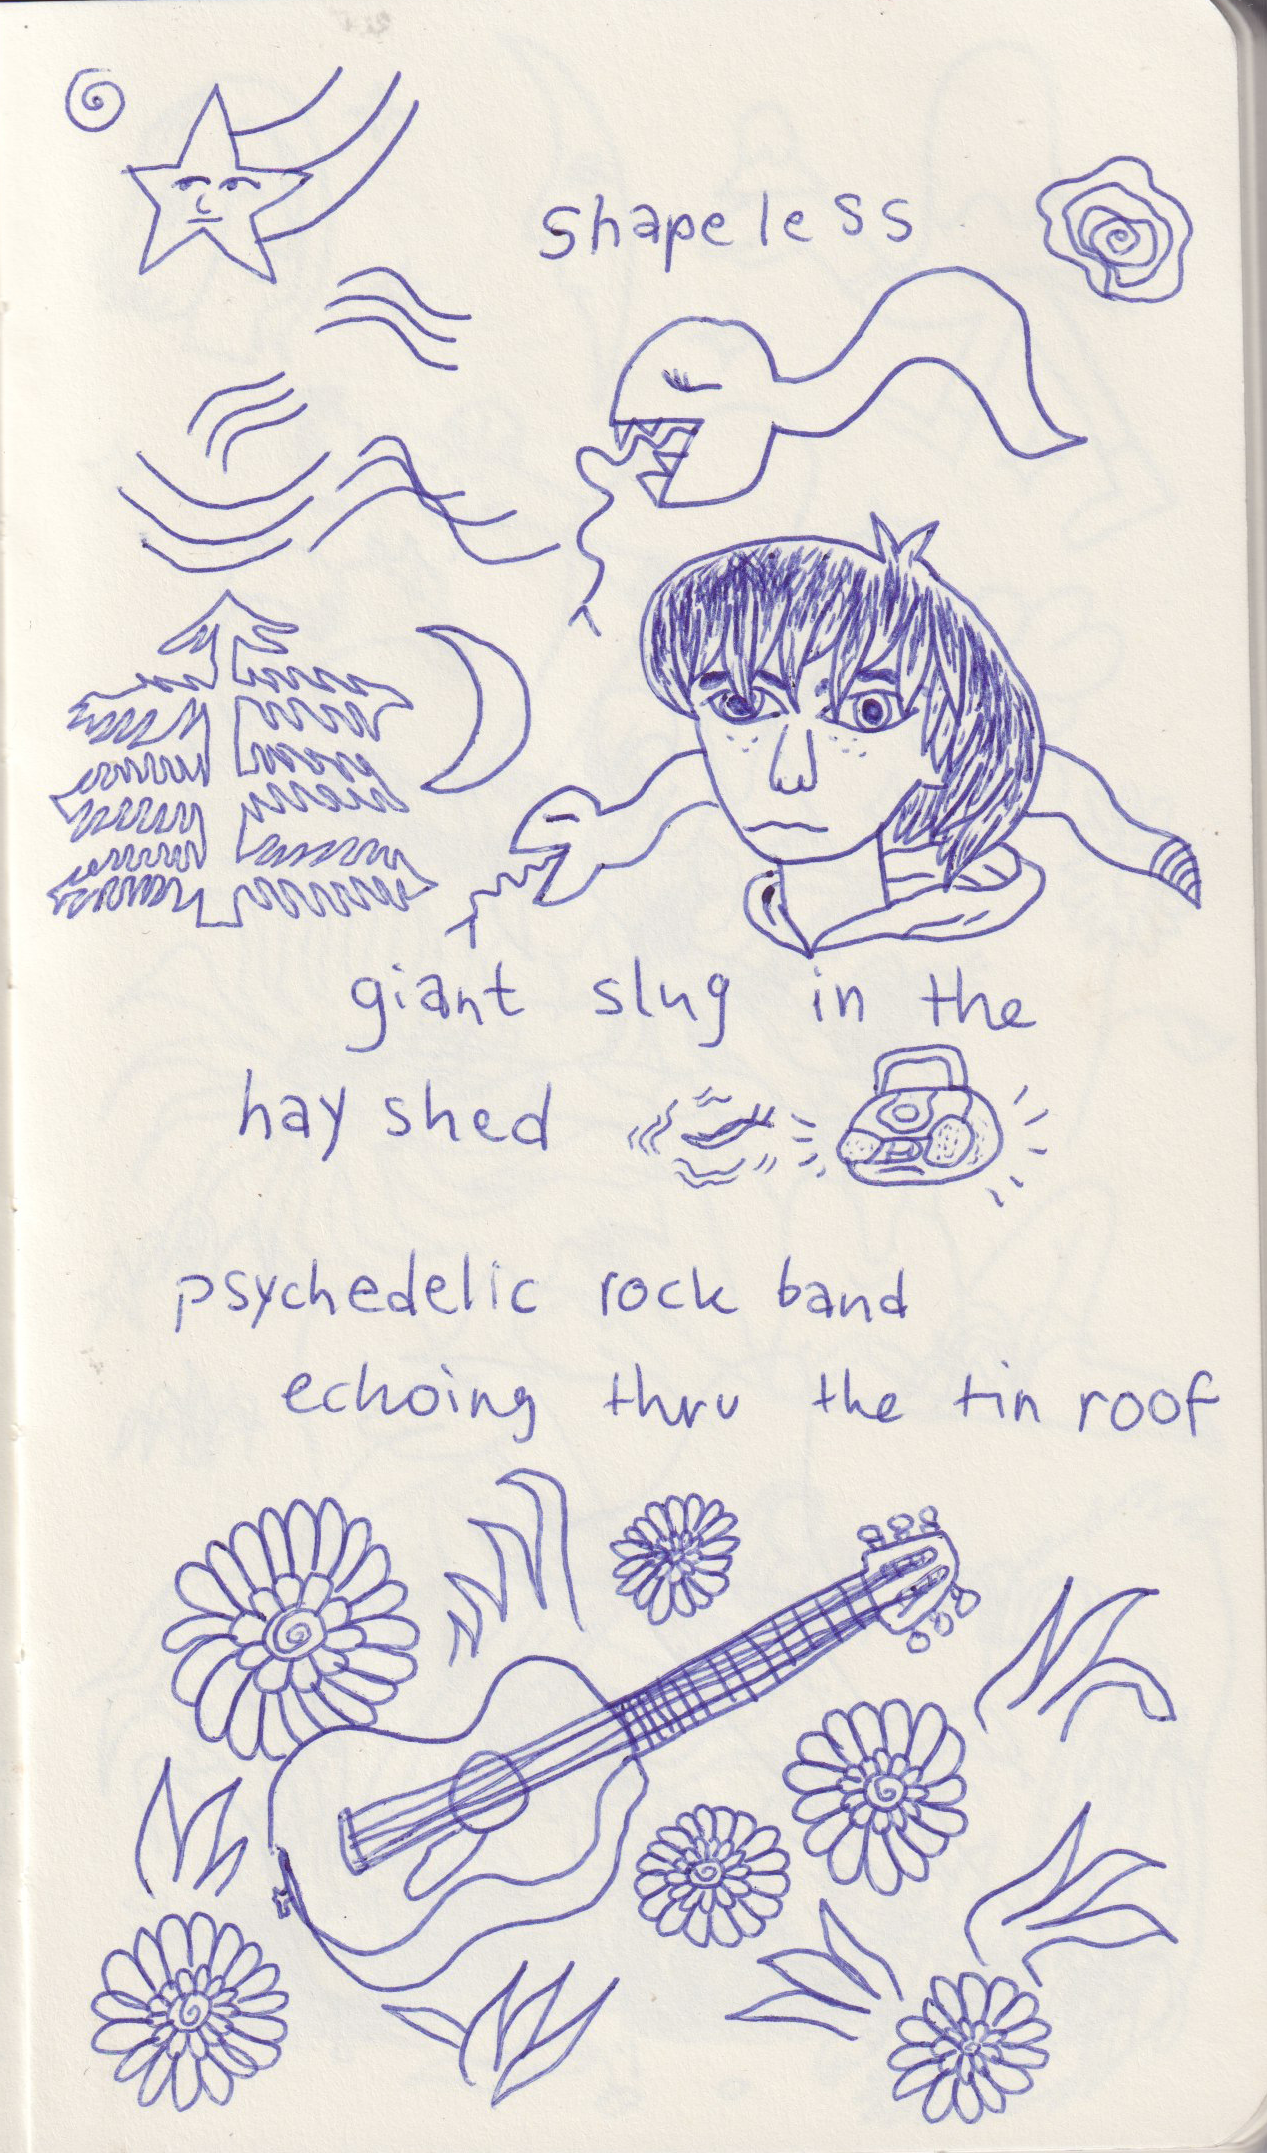 shapeless
giant slug in the
hay shed
psychedelic rock band
echoing thru the tin roof